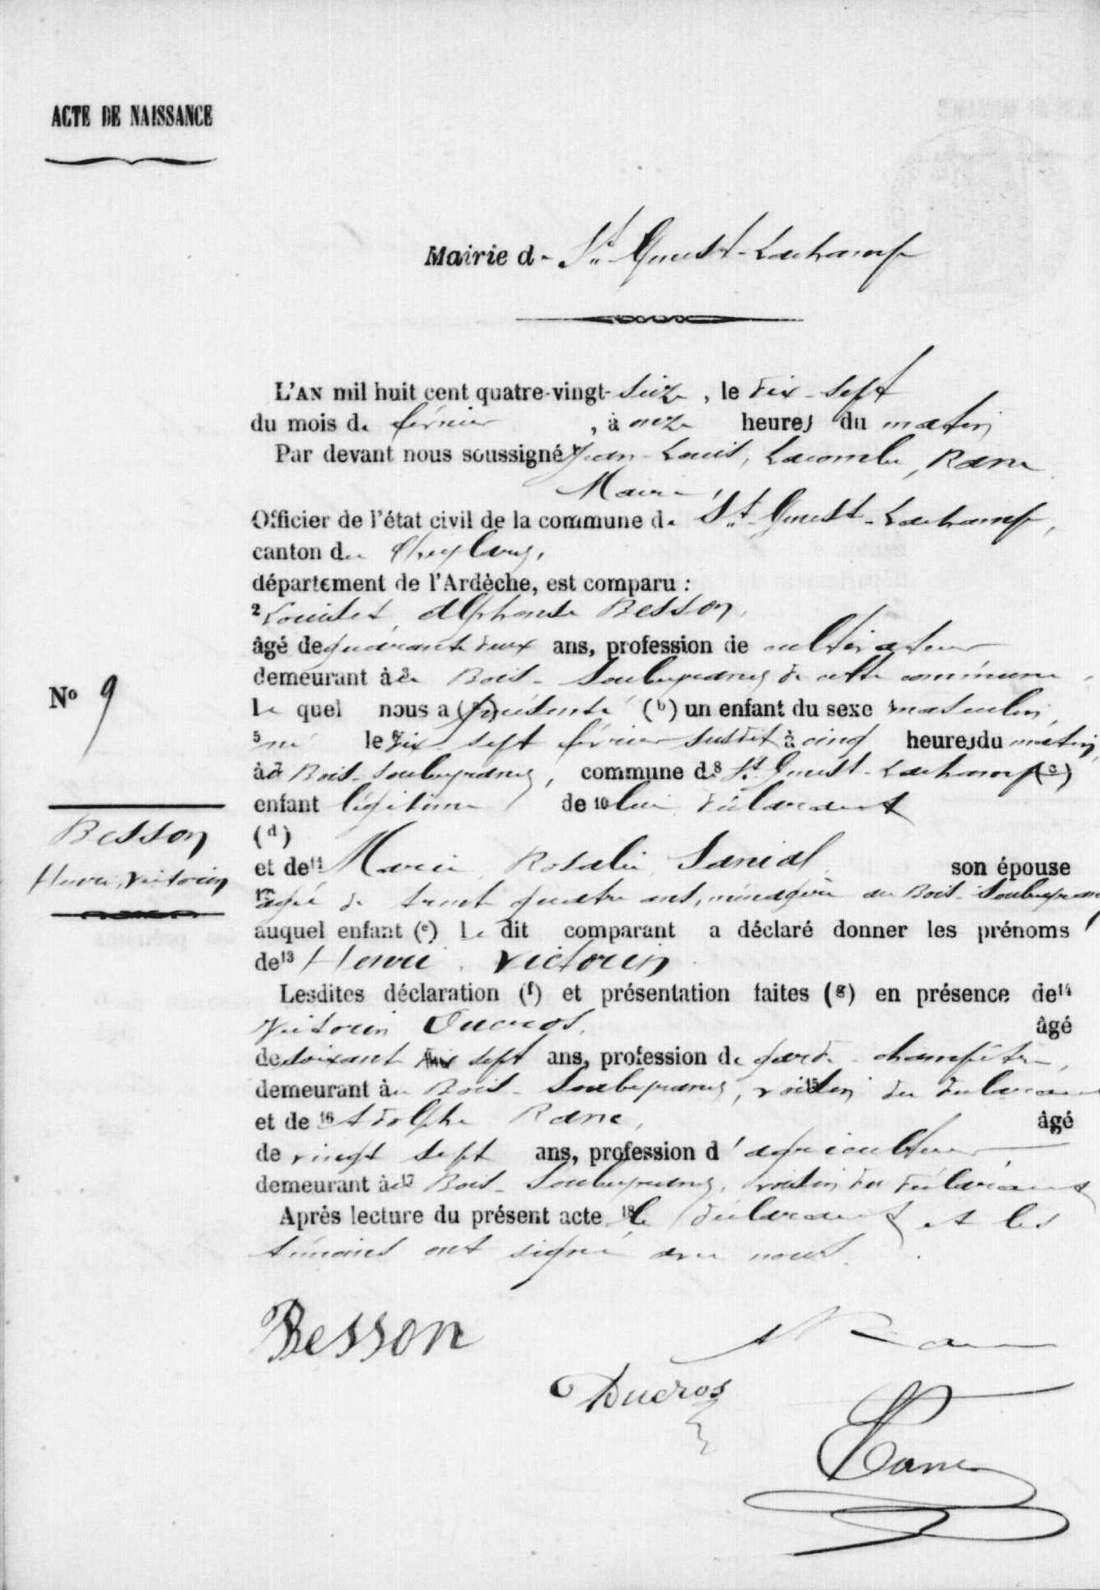 ACTE DE NAISSANCE
Mairie de St Genest-Lachamp
L'AN mil huit cent quatre-vingt-seize, le dix-sept
du mois de février, à onze heures du matin
Par devant nous soussigné Jean-Louis, Lacombe, Ranc
Maire,
Officier de l'état civil de la commune de St Genest-Lachamp,
canton du Cheylard,
département de l'Ardèche, est comparu :
2 Alphonse Besson,
âgé de quarante deux ans, profession de cultivateur
demeurant à 3 Bois-Soubeyrang de cette commune,
le quel nous a (a) présenté (b) un enfant du sexe masculin,
5 né le 6 dix sept février susdit à cinq heures du matin,
à Bois-Soubeyrang, commune de 8 St Genest-Lachamp (c)
enfant légitime de 10 lui déclarant
(d)
et de 11 Marie Rosalie Sanial son épouse
12 agée de trente quatre ans, ménagère au Bois-Soubeyrang
auquel enfant (e) le dit comparant a déclaré donner les prénoms
de 13 Henri, Victorin
Lesdites déclaration (f) et présentation faites (g) en présence de 14
Victorin Ducros, âgé
de soixante sept ans, profession de garde-champêtre,
demeurant au Bois-Soubeyrang, 15 voisin du déclarant
et de 16 Adolphe Ranc, âgé
de vingt sept ans, profession d'agriculteur,
demeurant à 17 Bois-Soubeyrang, voisin du déclarant
Après lecture du présent acte, 18 le déclarant et les
témoins ont signé avec nous.
Nº 9
Besson
Henri, Victorin
Besson
A Ranc
Ducros
Ranc